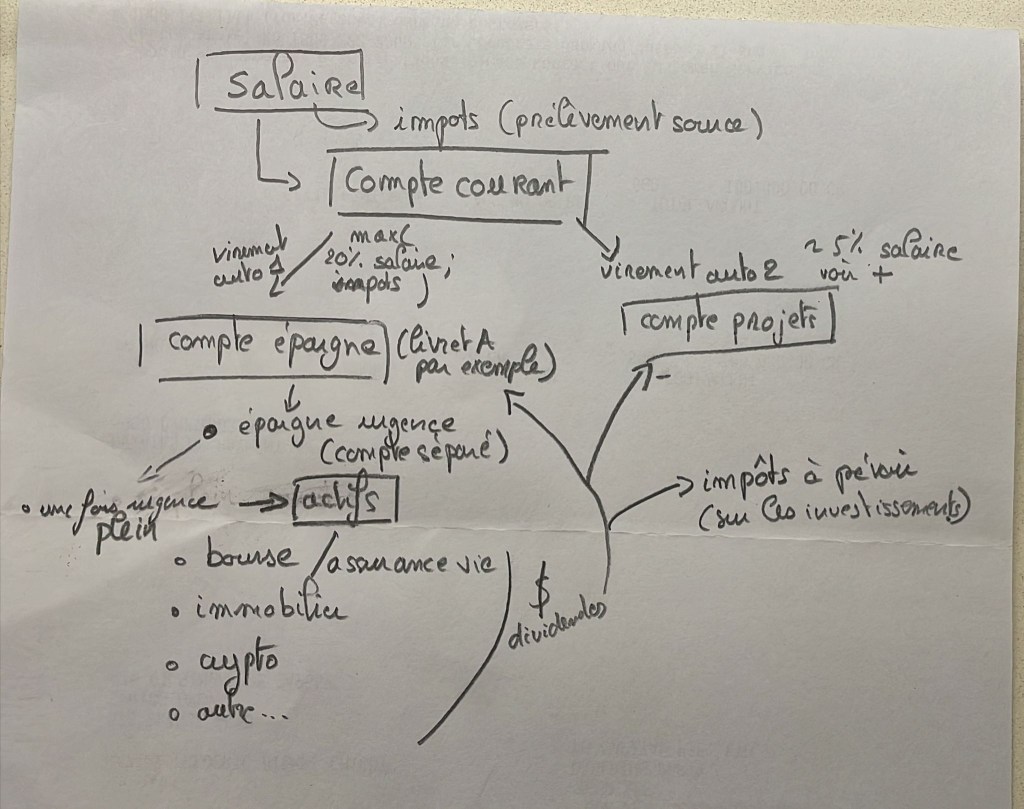 salaire
impots (prélèvement source)
compte courant
virement
auto 1
max(
20% salaire;
impots )
virement auto 2
~ 5% salaire
voir +
compte épargne
(livret A
par exemple)
compte projets
épargne urgence
(compte séparé)
une fois urgence
plein
actifs
impôts à prévoir
(sur les investissements)
bourse / assurance vie
immobilier
crypto
autre...
$
dividendes